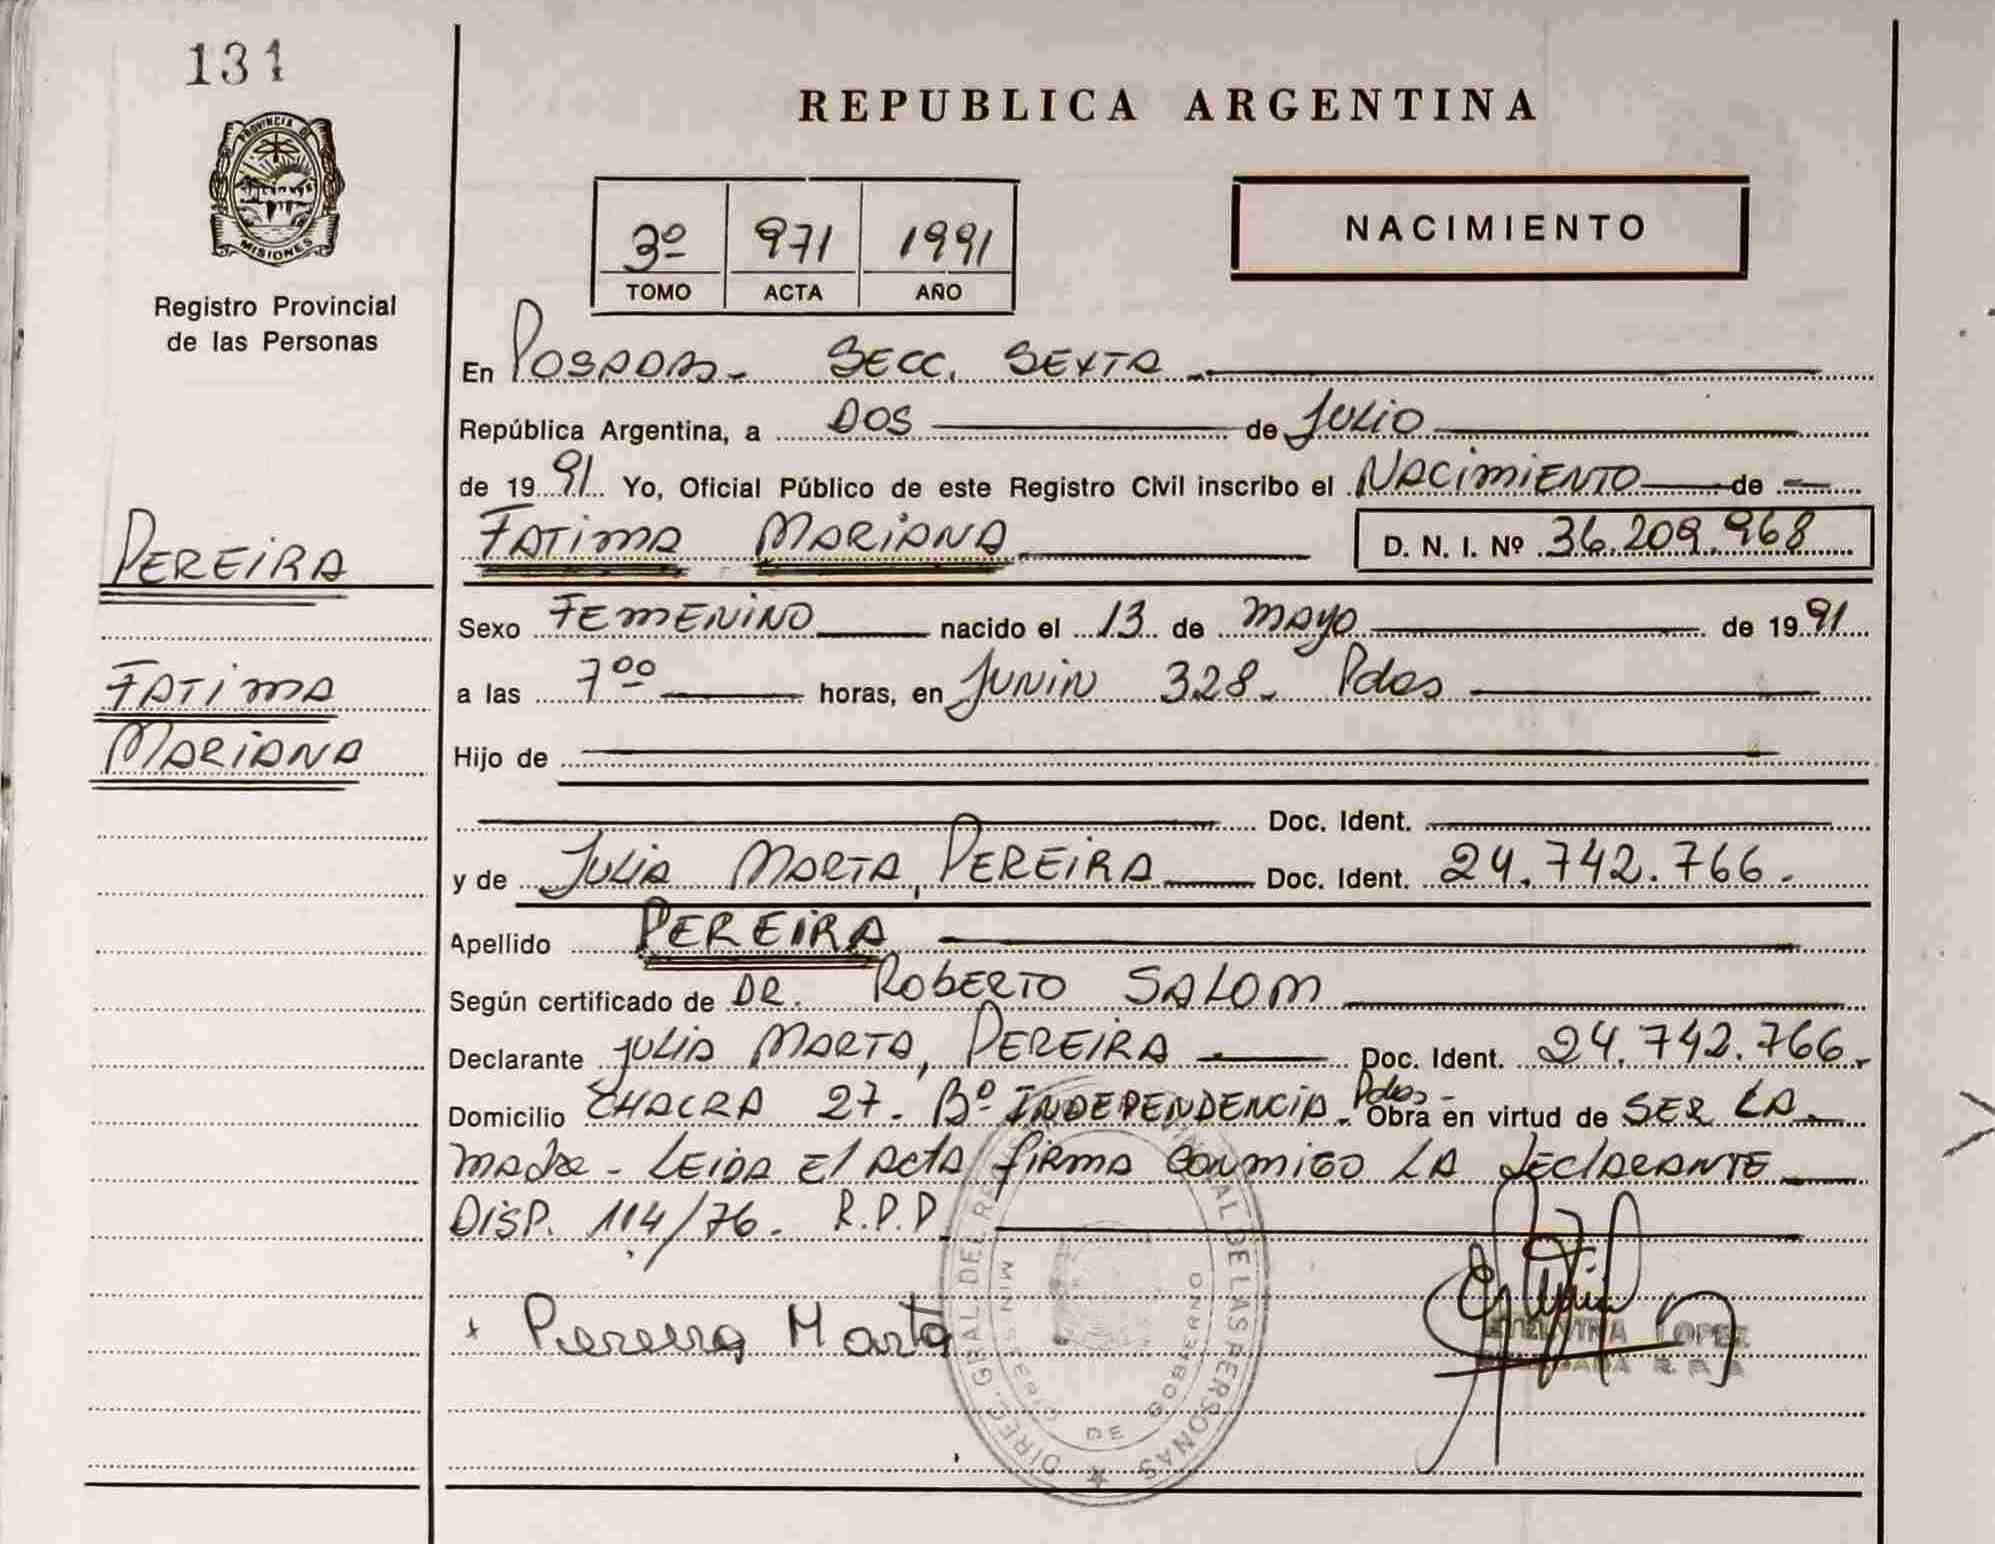 131
PROVINCIA DE
MISIONES
Registro Provincial
de las Personas
PEREIRA
FATIMA
MARIANA
REPUBLICA ARGENTINA
3º 971 1991
TOMO ACTA AÑO
NACIMIENTO
En POSADAS- SECC. SEXTA
República Argentina, a DOS de JULIO
de 1991 Yo, Oficial Público de este Registro Civil inscribo el NACIMIENTO de
FATIMA MARIANA D. N. I. Nº 36.209.968
Sexo FEMENINO nacido el 13 de MAYO de 1991
a las 7ºº horas, en JUNIN 328- Pdas
Hijo de
Doc. Ident.
y de JULIA MARTA, PEREIRA Doc. Ident. 24.742.766.
Apellido PEREIRA
Según certificado de DR. ROBERTO SALOM
Declarante JULIA MARTA, PEREIRA Doc. Ident. 24.742.766.
Domicilio CHACRA 27- Bº INDEPENDENCIA- Pdas- Obra en virtud de SER LA
MADRE- LEIDA El ACTA firma CONMIGO LA DEClARANTE
DISP. 114/76. R.P.P
x Pereira Marta
ETELVINA LOPEZ
R. P. P.
DIREC. GRAL. DEL REGISTRO PROVINCIAL DE LAS PERSONAS
MINISTERIO DE GOBIERNO